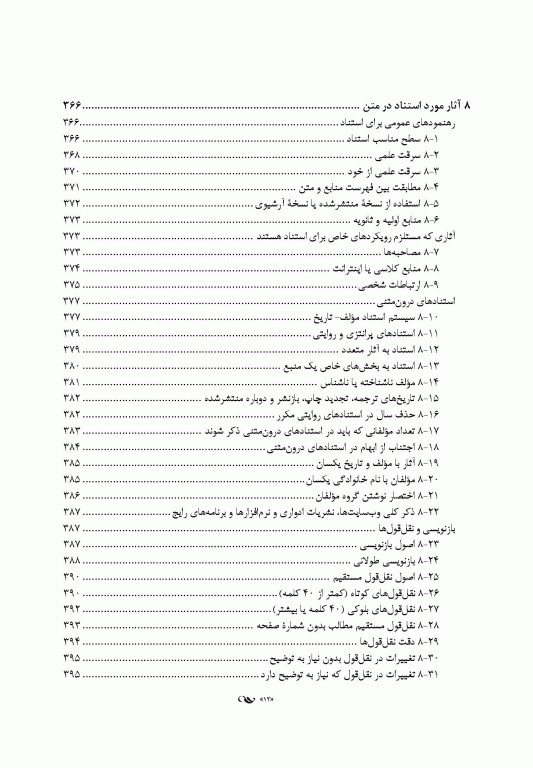 ۸ آثار مورد استناد در متن ........ ۳۶۶
رهنمودهای عمومی برای استناد ........ ۳۶۶
۸-۱ سطح مناسب استناد ........ ۳۶۶
۸-۲ سرقت علمی ........ ۳۶۸
۸-۳ سرقت علمی از خود ........ ۳۷۰
۸-۴ مطابقت بین فهرست منابع و متن ........ ۳۷۱
۸-۵ استفاده از نسخهٔ منتشرشده یا نسخهٔ آرشیوی ........ ۳۷۲
۸-۶ منابع اولیه و ثانویه ........ ۳۷۳
آثاری که مستلزم رویکردهای خاص برای استناد هستند ........ ۳۷۳
۸-۷ مصاحبه‌ها ........ ۳۷۳
۸-۸ منابع کلاسی یا اینترانت ........ ۳۷۴
۸-۹ ارتباطات شخصی ........ ۳۷۵
استنادهای درون‌متنی ........ ۳۷۷
۸-۱۰ سیستم استناد مؤلف- تاریخ ........ ۳۷۷
۸-۱۱ استنادهای پرانتزی و روایتی ........ ۳۷۹
۸-۱۲ استناد به آثار متعدد ........ ۳۷۹
۸-۱۳ استناد به بخش‌های خاص یک منبع ........ ۳۸۰
۸-۱۴ مؤلف ناشناخته یا ناشناس ........ ۳۸۱
۸-۱۵ تاریخ‌های ترجمه، تجدید چاپ، بازنشر و دوباره منتشرشده ........ ۳۸۲
۸-۱۶ حذف سال در استنادهای روایتی مکرر ........ ۳۸۲
۸-۱۷ تعداد مؤلفانی که باید در استنادهای درون‌متنی ذکر شوند ........ ۳۸۳
۸-۱۸ اجتناب از ابهام در استنادهای درون‌متنی ........ ۳۸۴
۸-۱۹ آثار با مؤلف و تاریخ یکسان ........ ۳۸۵
۸-۲۰ مؤلفان با نام خانوادگی یکسان ........ ۳۸۵
۸-۲۱ اختصار نوشتن گروه مؤلفان ........ ۳۸۶
۸-۲۲ ذکر کلی وب‌سایت‌ها، نشریات ادواری و نرم‌افزارها و برنامه‌های رایج ........ ۳۸۷
بازنویسی و نقل‌قول‌ها ........ ۳۸۷
۸-۲۳ اصول بازنویسی ........ ۳۸۷
۸-۲۴ بازنویسی طولانی ........ ۳۸۸
۸-۲۵ اصول نقل‌قول مستقیم ........ ۳۹۰
۸-۲۶ نقل‌قول‌های کوتاه (کمتر از ۴۰ کلمه) ........ ۳۹۰
۸-۲۷ نقل‌قول‌های بلوکی (۴۰ کلمه یا بیشتر) ........ ۳۹۲
۸-۲۸ نقل‌قول مستقیم مطالب بدون شمارهٔ صفحه ........ ۳۹۳
۸-۲۹ دقت نقل‌قول‌ها ........ ۳۹۴
۸-۳۰ تغییرات در نقل‌قول بدون نیاز به توضیح ........ ۳۹۵
۸-۳۱ تغییرات در نقل‌قول که نیاز به توضیح دارد ........ ۳۹۵
«۱۲»